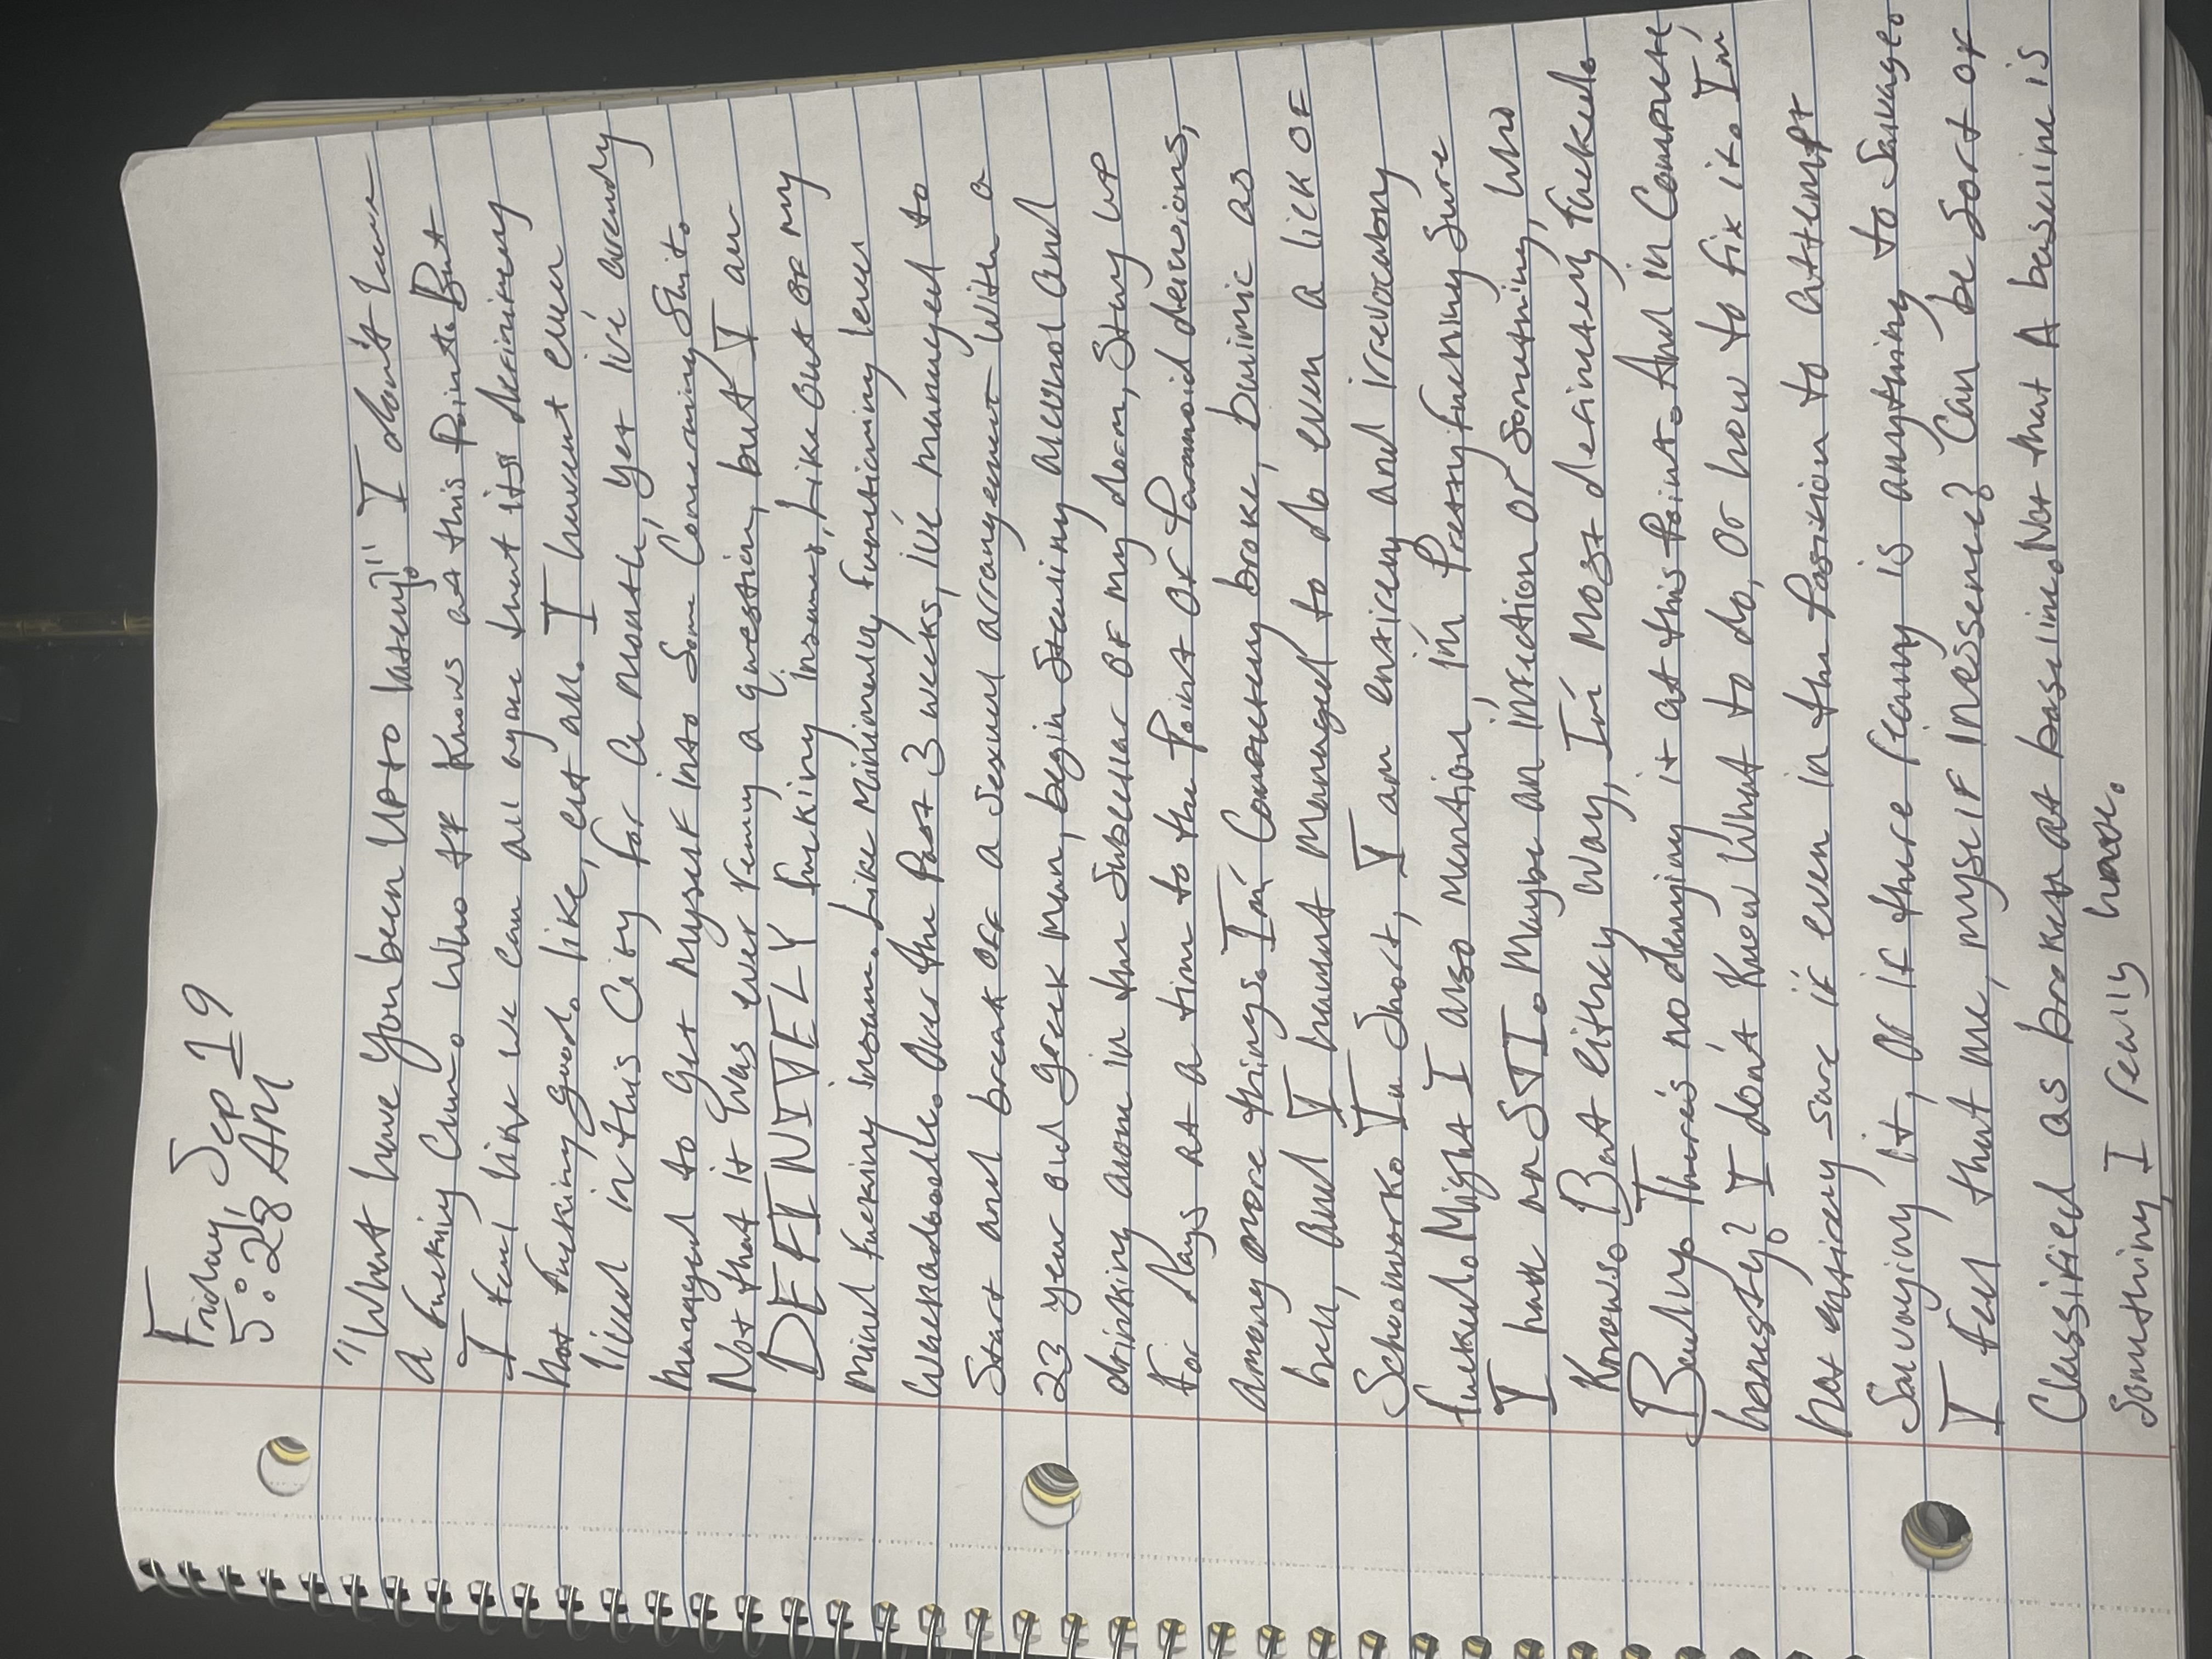 Friday, Sep 19
5:28 AM
"What have you been up to lately?" I don't have
a fucking clue. Who tf knows at this point. But
I feel like we can all agree that its definitely
not fucking good. like, at all. I havent even
lived in this city for a month, yet i've already
managed to get myself into some concerning shit.
Not that it was ever really a question, but I am
DEFINIVELY fucking insane. Like out of my
mind fucking insane. Like minimally functioning level
Over the past 3 weeks, i've managed to
start and break off a sexual arrangement with a
23 year old greek man, begin stealing alcohol and
drinking alone in the subcellar of my dorm, stay up
for days at a time to the point of paranoid delusions,
among more things. I'm completely broke, bulimic as
hell, and I havent managed to do even a lick of
schoolwork. In short, I am entirely and irrevocably
fucked. Might I also mention, i'm pretty fucking sure
I have an STI. Maybe an infection or something, who
knows. But either way, I'm most definitely fucked.
Badly. There's no denying it at this point. And in complete
honesty? I don't know what to do, or how to fix it. I'm
not entirely sure if even in the position to attempt
salvaging it, or if there really is anything to salvage.
I feel that me, myself inessence? Can be sort of
classified as broken at baseline. Not that A baseline is
something I really have.